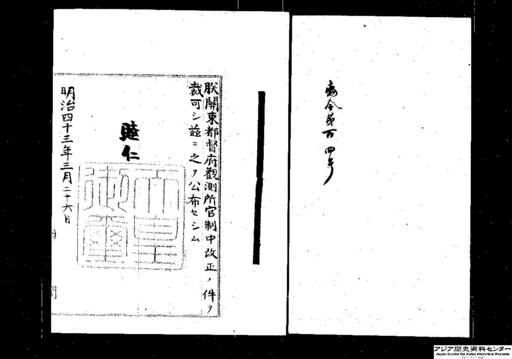 勅令第百四号
朕關東都督府觀測所官制中改正ノ件ヲ
裁可シ茲ニ之ヲ公布セシム
睦仁
天皇御璽
明治四十三年三月二十六日
アジア歴史資料センター
Japan Center for Asian Historical Records